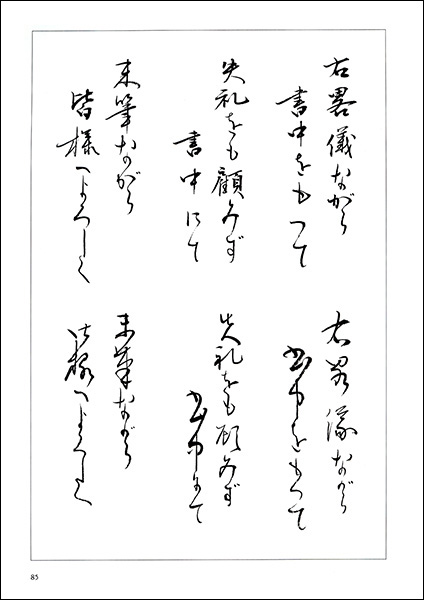 右畧儀ながら
書中をもつて
失礼をも顧みず
書中にて
末筆ながら
皆様へよろしく
右畧儀ながら
書中をもつて
失礼をも顧みず
書中にて
末筆ながら
皆様へよろしく
85